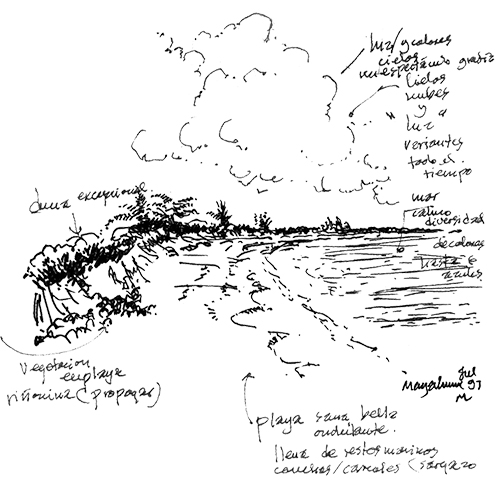 luz/y colores
cielos
un espectáculo gratis
Cielos
nubes
y a
luz
variantes
todo el
tiempo
duna excepcional
mar
calmo
diversidad
de colores
hasta 6
azules
Vegetacion
en playa
(propagar)
Jul
97
playa sana bella
ondulante.
llena de restos marinos
conchas/caracoles (sargazo